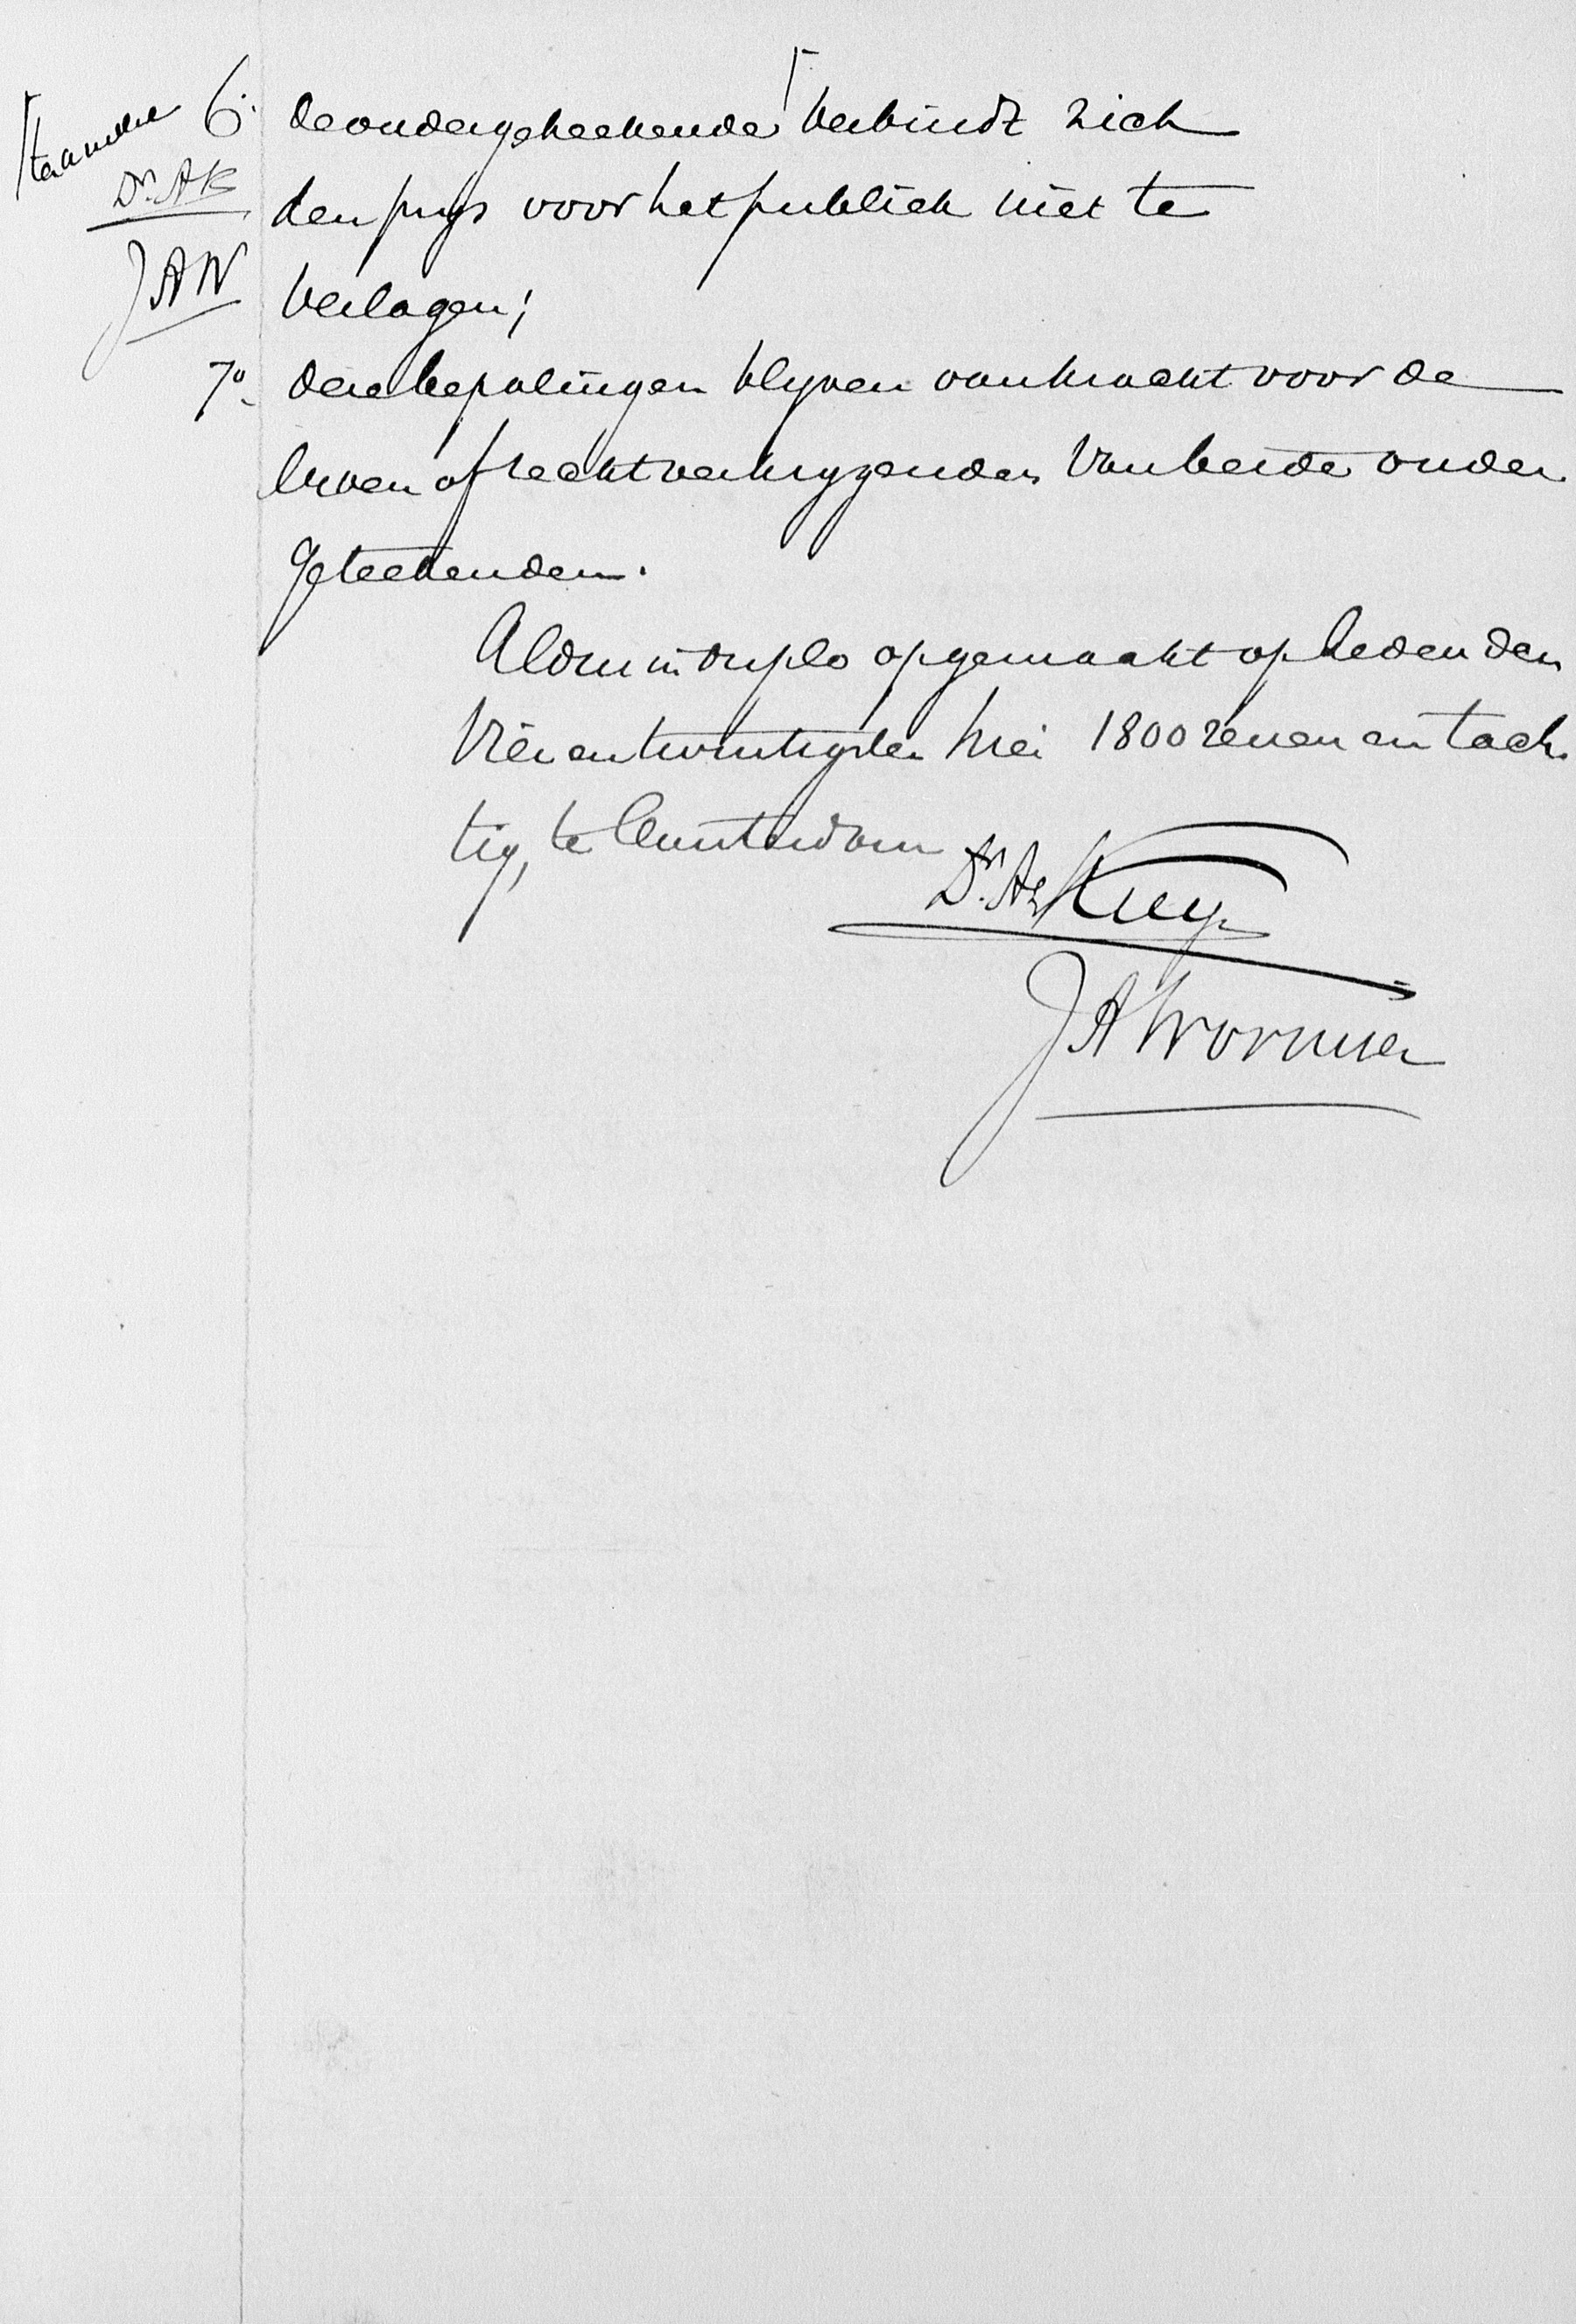 ⌈ter andere
Dr. AK
JAW
6º. de ondergeteekende ⌈ verbindt zich
den prijs voor het publiek niet te
verlagen;
7º. deze bepalingen blijven van kracht voor de
erven of rechtverkrijgenden van beide onder
geteekenden.
Aldus in duplo opgemaakt op heden den
Vierentwintigsten Mei 1800 zeven en tach
tig, te Amsterdam
Dr. A Kuyper
JAWormser